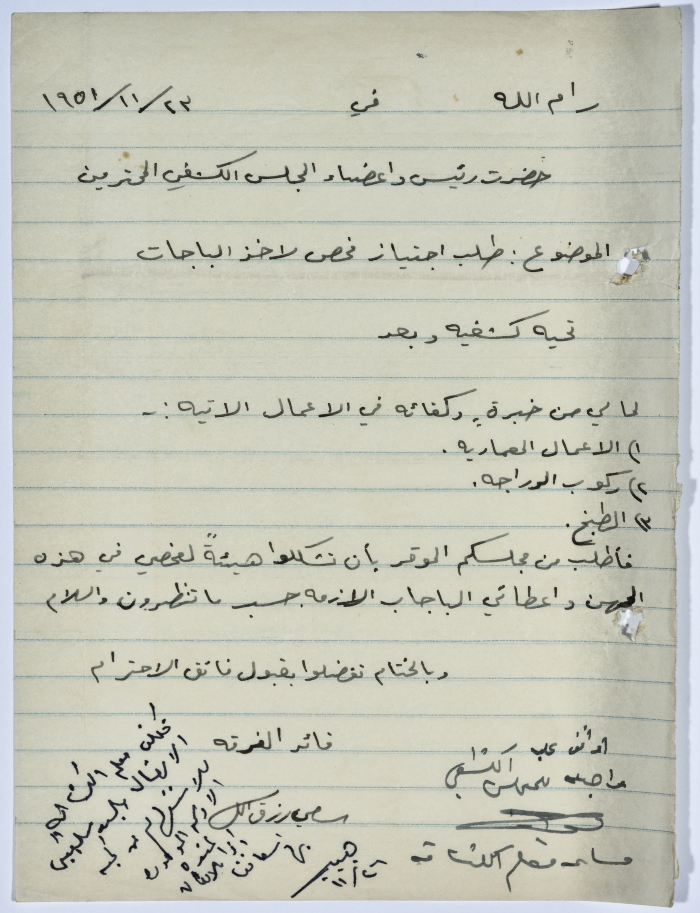 رام الله في ٢٣/١١/١٩٥١
حضرت رئيس واعضاء المجلس الكشفي المحترمين
الموضوع : طلب اجتياز فحص لاخذ الباجات
تحيه كشفيه وبعد
لما لي من خبرة وكفائه في الاعمال الاتيه :-
١) الاعمال المعماريه .
٢) ركوب الدراجه .
٣) الطبخ .
فأطلب من مجلسكم الموقر بأن تشكلوا هيئةً لفحصي في هذه
المهن واعطائي الباجاب الازمه حسب ما تنظرون والسلام
وبالختام تفضلوا بقبول فائق الاحترام
قائد الفرقه
سامي رزق الله
اوافق على
المجلس الكشفي